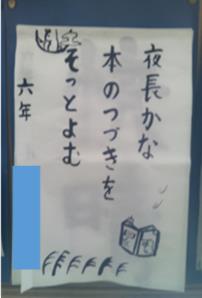 夜長かな
本のつづきを
そっとよむ
六年